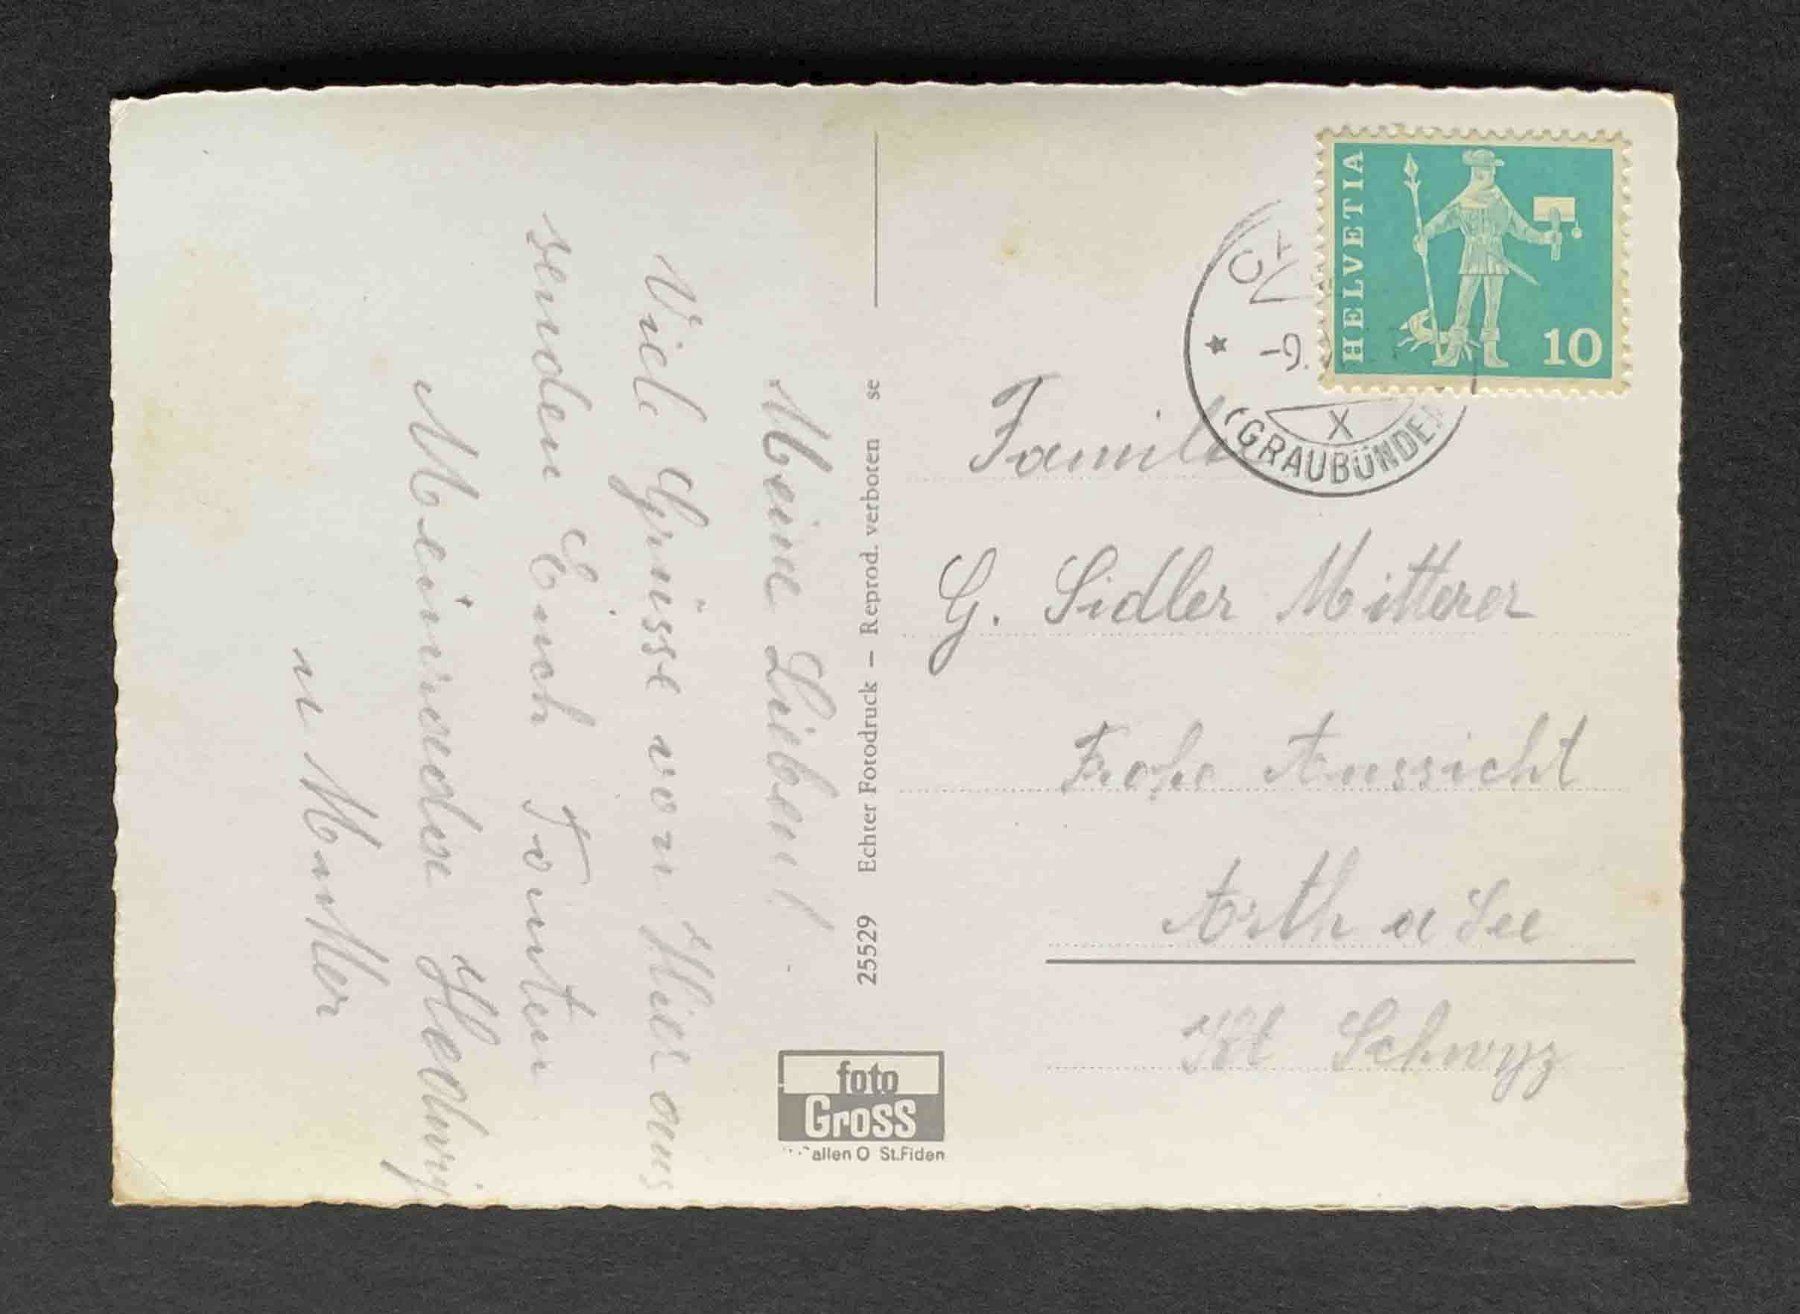 Meine Lieben!
Viele Grüsse von Hier aus
senden Euch
Hedwig
u Mutter
25529 Echter Fotodruck – Reprod. verboten se
foto
Gross
allen O St.Fiden
HELVETIA
10
-9.
X
(GRAUBÜNDEN
G. Sidler Mitterer
Frohe Aussicht
Arth a See
Kt Schwyz